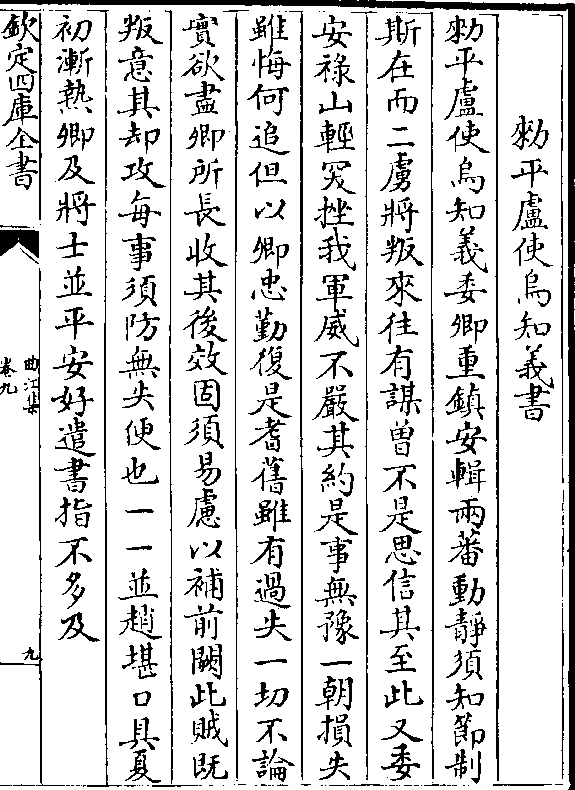 勅平盧使烏知義書
勅平盧使烏知義委卿重鎮安輯兩蕃動靜須知節制
斯在而二虜將叛來往有謀曽不是思信其至此又委
安祿山輕突挫我軍威不嚴其約是事無豫一朝損失
雖悔何追但以卿忠勤復是耆舊雖有過失一切不論
實欲盡卿所長收其後效固須易慮以補前闕此賊既
叛意其却攻每事須防無失便也一一並趙堪口具夏
初漸熱卿及將士並平安好遣書指不多及
欽定四庫全書
曲江集
卷九
九